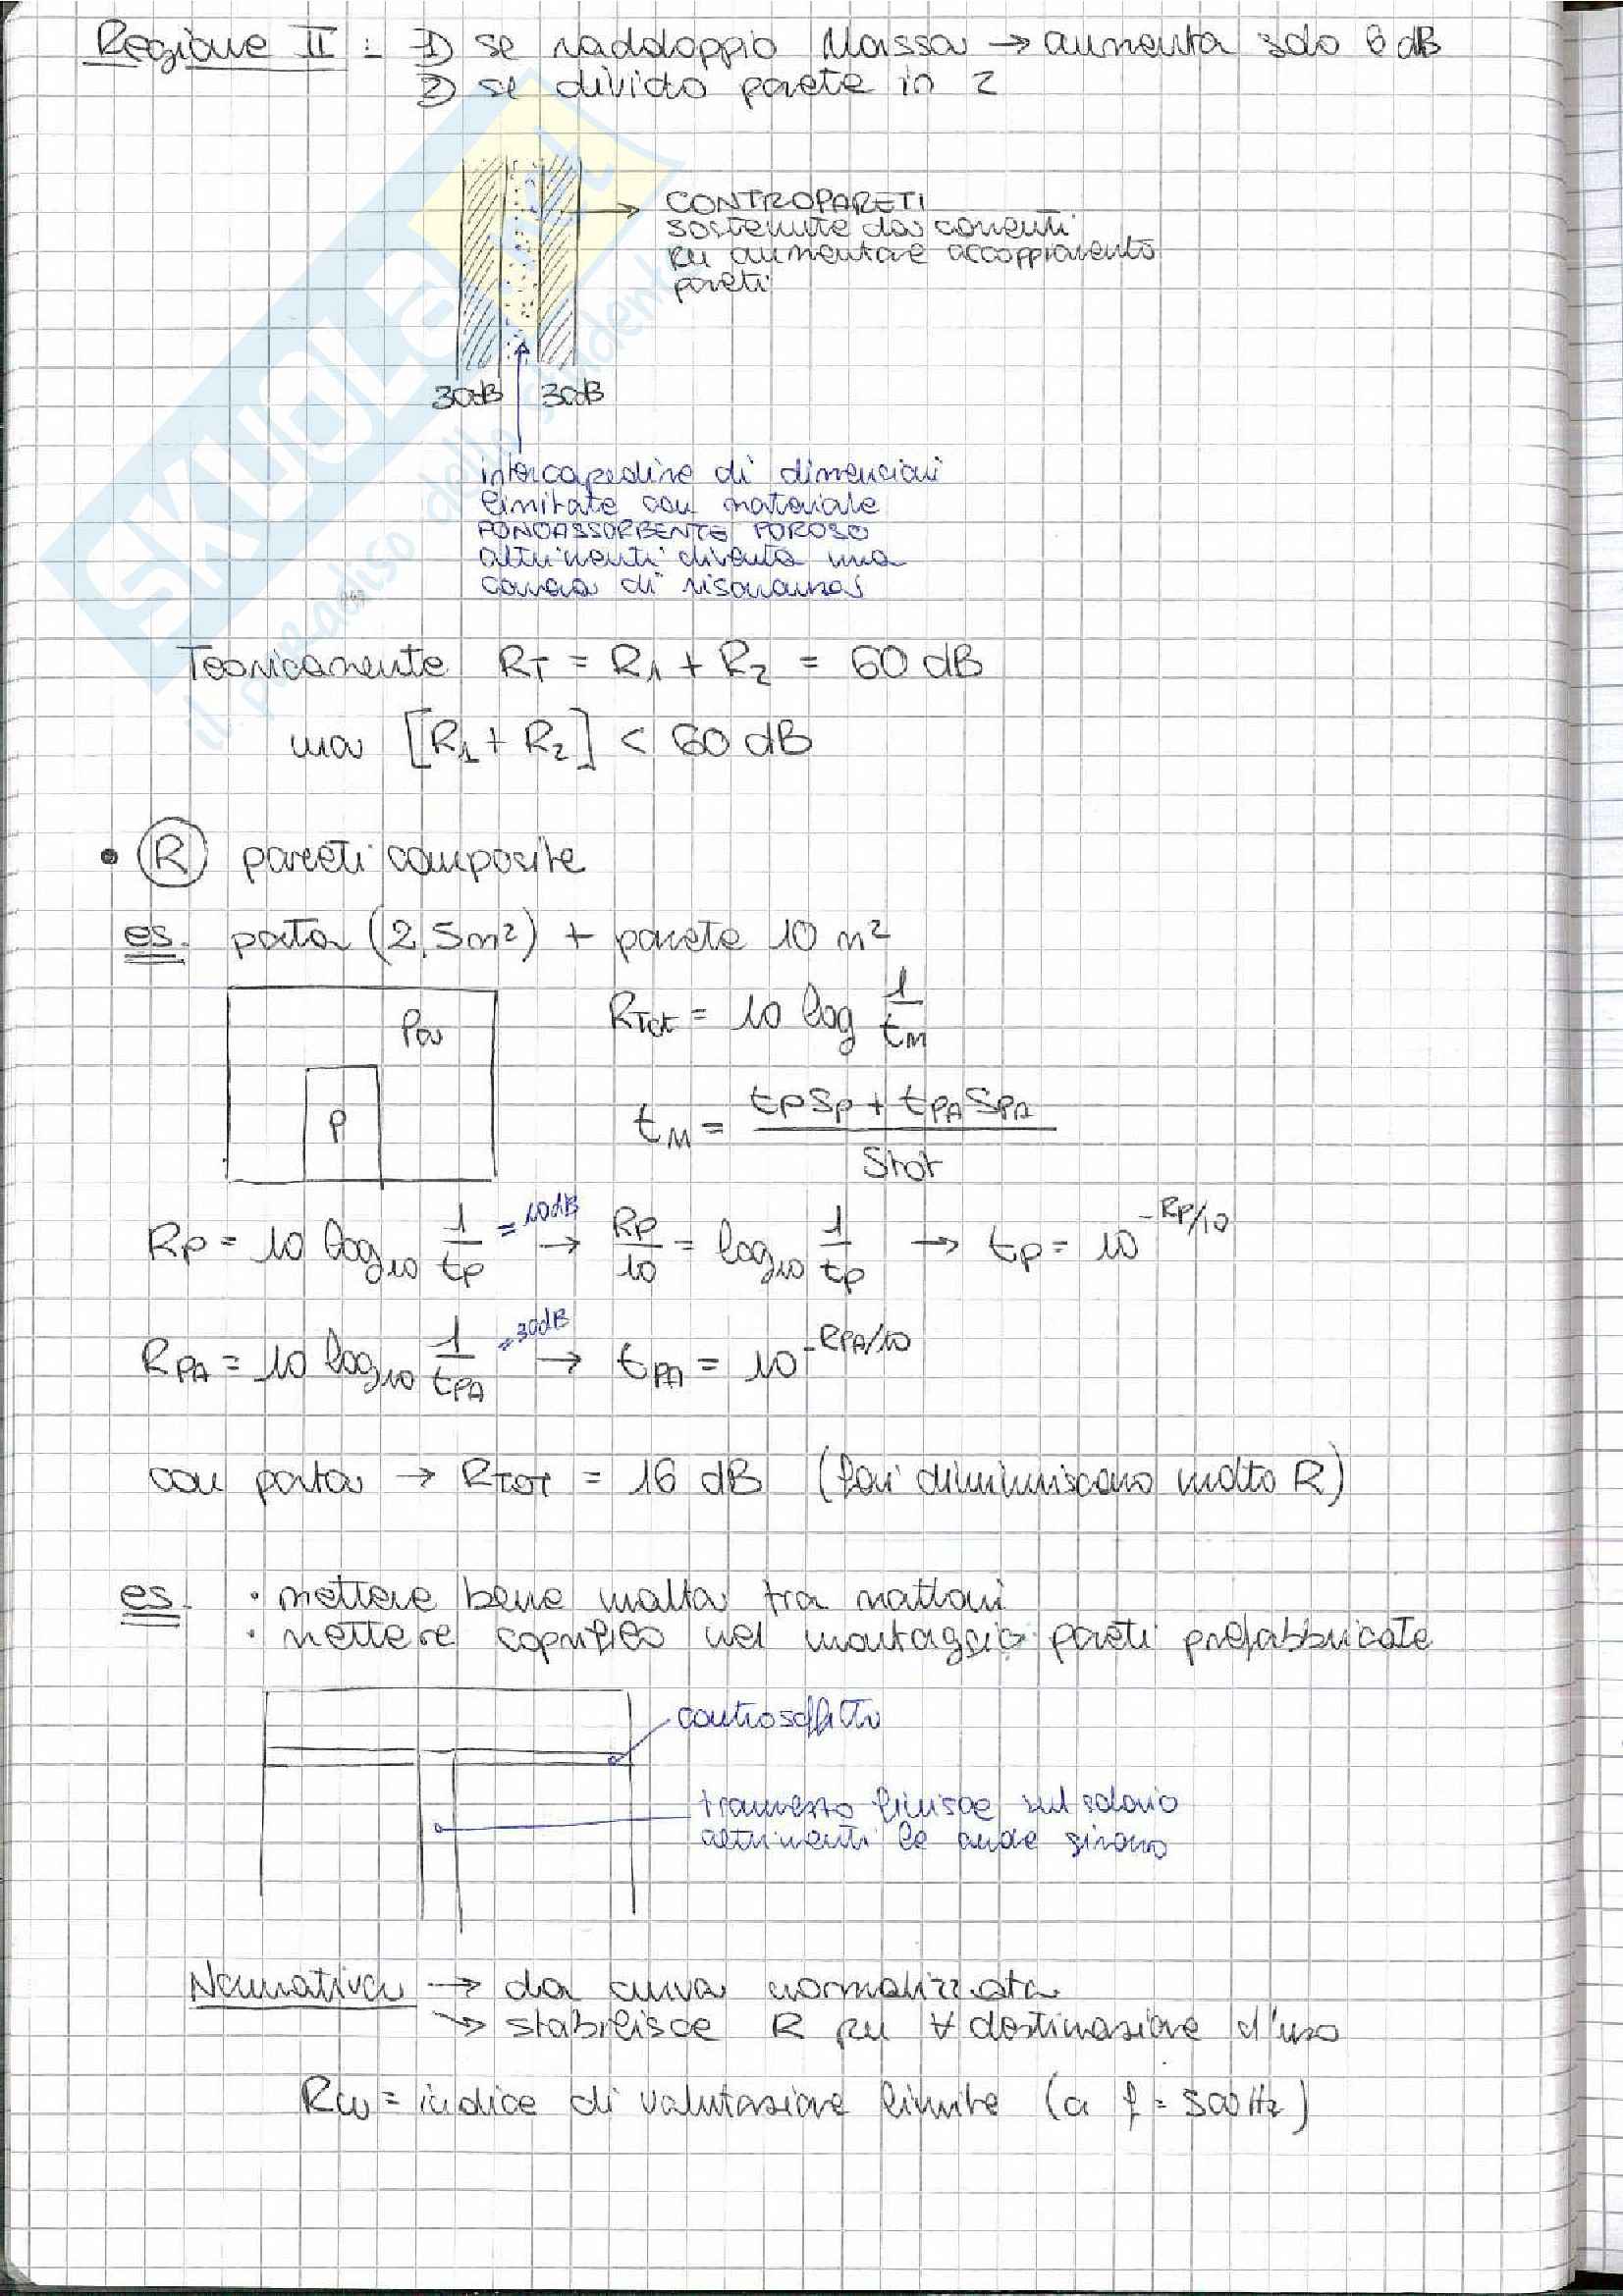 Regione II : 1) se raddoppio Massa → aumenta solo 6 dB
2) se divido parete in 2
CONTROPARETI
sostenute da correnti
per aumentare accoppiamento
pareti
30dB 30dB
intercapedine di dimensioni
limitate con materiale
FONOASSORBENTE POROSO
altrimenti diventa una
cassa di risonanza
Teoricamente RT = R1 + R2 = 60 dB
ma [R1 + R2] < 60 dB
• R pareti composite
es. porta (2,5m²) + parete 10 m²
Pa
P
RTot = 10 log 1/tM
tM = (tP SP + tPA SPA)/Stot
RP = 10 log10 1/tP = 10dB → RP/10 = log10 1/tP → tP = 10^-RP/10
RPA = 10 log10 1/tPA = 30dB → tPA = 10^-RPA/10
con porta → RTOT = 16 dB (fori diminuiscono molto R)
es. · mettere bene malta tra mattoni
· mettere coprifilo nel montaggio pareti prefabbricate
controsoffitto
tramezzo finisce sul solaio
altrimenti le onde girano
Normativa → da curva normalizzata
→ stabilisce R per ∀ destinazione d'uso
Rw = indice di valutazione limite (a f = 500Hz)
SKUOLA.net
il paradiso dello studente